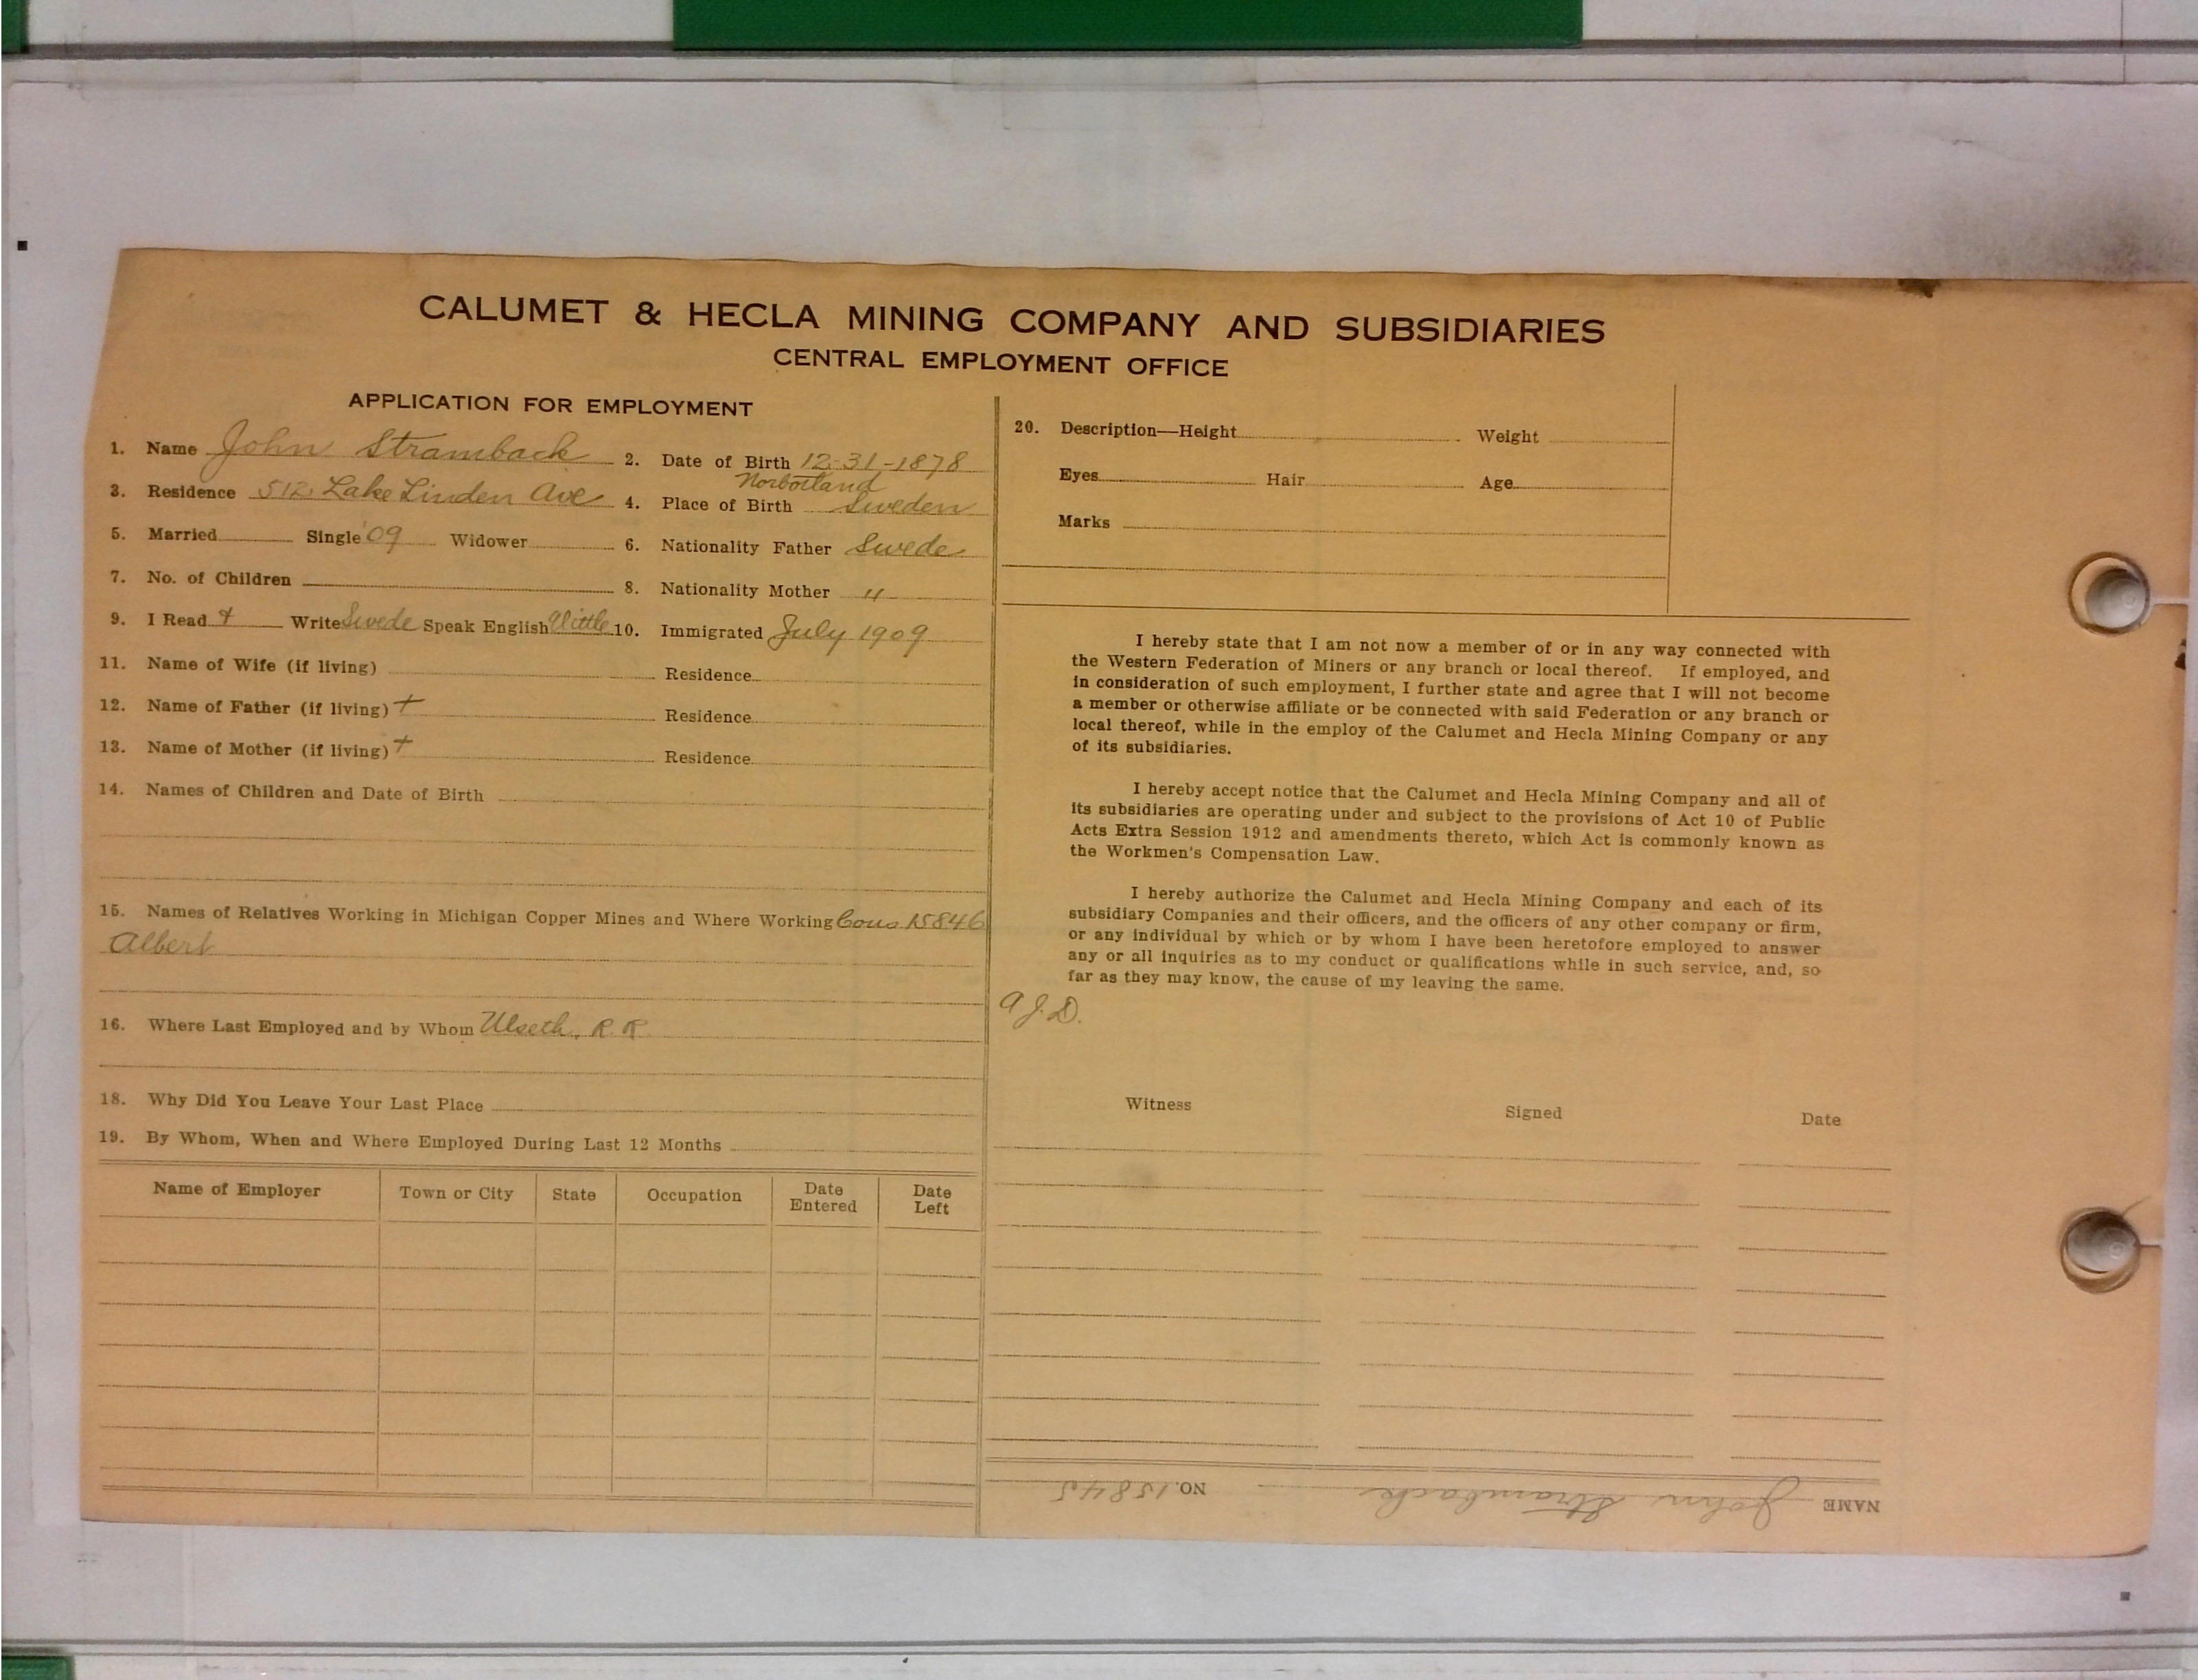 CALUMET & HECLA MINING COMPANY AND SUBSIDIARIES
CENTRAL EMPLOYMENT OFFICE
APPLICATION FOR EMPLOYMENT
1. Name John Stramback
2. Date of Birth 12-31-1878
3. Residence 512 Lake Linden Ave
Norbotland
4. Place of Birth Sweden
5. Married Single '09 Widower
6. Nationality Father Swede
7. No. of Children
8. Nationality Mother "
9. I Read + Write Swede Speak English little
10. Immigrated July 1909
11. Name of Wife (if living) Residence
12. Name of Father (if living) + Residence
13. Name of Mother (if living) + Residence
14. Names of Children and Date of Birth
15. Names of Relatives Working in Michigan Copper Mines and Where Working Cous. 15846
Albert
16. Where Last Employed and by Whom Ulseth, R. R.
18. Why Did You Leave Your Last Place
19. By Whom, When and Where Employed During Last 12 Months
Name of Employer Town or City State Occupation Date Entered Date Left
20. Description—Height Weight
Eyes Hair Age
Marks
I hereby state that I am not now a member of or in any way connected with
the Western Federation of Miners or any branch or local thereof. If employed, and
in consideration of such employment, I further state and agree that I will not become
a member or otherwise affiliate or be connected with said Federation or any branch or
local thereof, while in the employ of the Calumet and Hecla Mining Company or any
of its subsidiaries.
I hereby accept notice that the Calumet and Hecla Mining Company and all of
its subsidiaries are operating under and subject to the provisions of Act 10 of Public
Acts Extra Session 1912 and amendments thereto, which Act is commonly known as
the Workmen's Compensation Law.
I hereby authorize the Calumet and Hecla Mining Company and each of its
subsidiary Companies and their officers, and the officers of any other company or firm,
or any individual by which or by whom I have been heretofore employed to answer
any or all inquiries as to my conduct or qualifications while in such service, and, so
far as they may know, the cause of my leaving the same.
A.J.D.
Witness Signed Date
NAME John Stramback NO. 15845